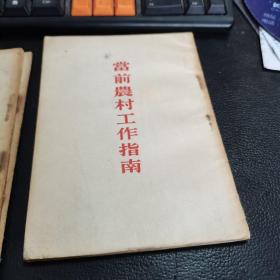 當前農村工作指南